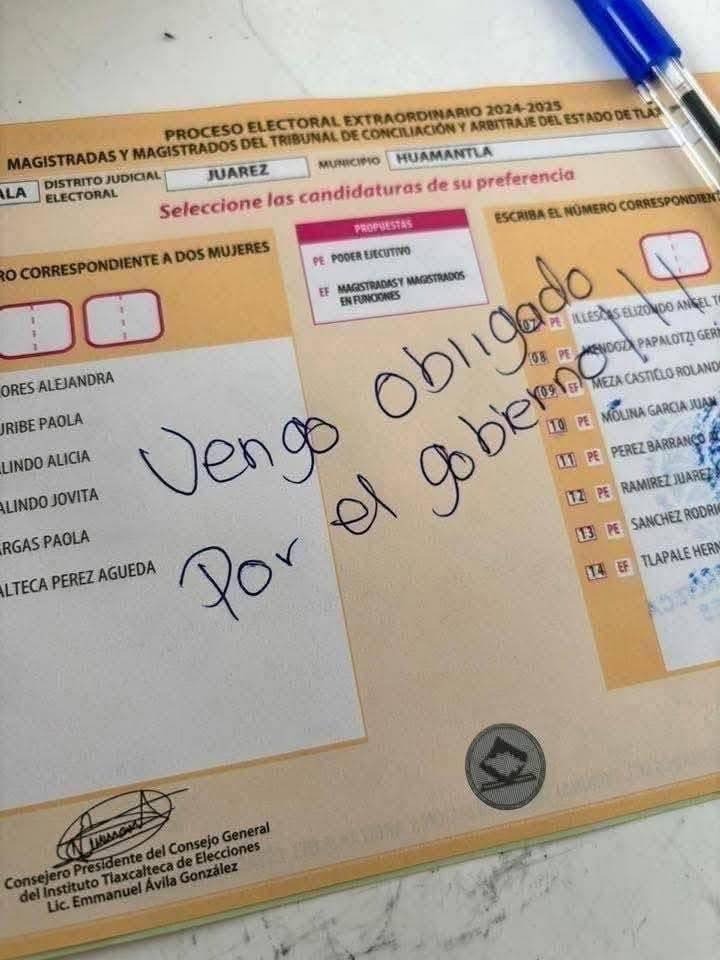 PROCESO ELECTORAL EXTRAORDINARIO 2024-2025
MAGISTRADAS Y MAGISTRADOS DEL TRIBUNAL DE CONCILIACIÓN Y ARBITRAJE DEL ESTADO DE TLAX
ALA DISTRITO JUDICIAL ELECTORAL JUAREZ MUNICIPIO HUAMANTLA
Seleccione las candidaturas de su preferencia
RO CORRESPONDIENTE A DOS MUJERES
ORES ALEJANDRA
URIBE PAOLA
ALINDO ALICIA
ALINDO JOVITA
ARGAS PAOLA
ALTECA PEREZ AGUEDA
PROPUESTAS
PE PODER EJECUTIVO
EF MAGISTRADAS Y MAGISTRADOS
EN FUNCIONES
ESCRIBA EL NÚMERO CORRESPONDIENT
07 PE ILLESCAS ELIZONDO ANGEL T
08 PE MENDOZA PAPALOTZI GER
09 EF MEZA CASTILLO ROLAND
10 PE MOLINA GARCIA JUAN
11 PE PEREZ BARRANCO
12 PE RAMIREZ JUAREZ
13 PE SANCHEZ RODRI
14 EF TLAPALE HERN
Vengo obligado
Por el gobierno!!!
Consejero Presidente del Consejo General
del Instituto Tlaxcalteca de Elecciones
Lic. Emmanuel Ávila González